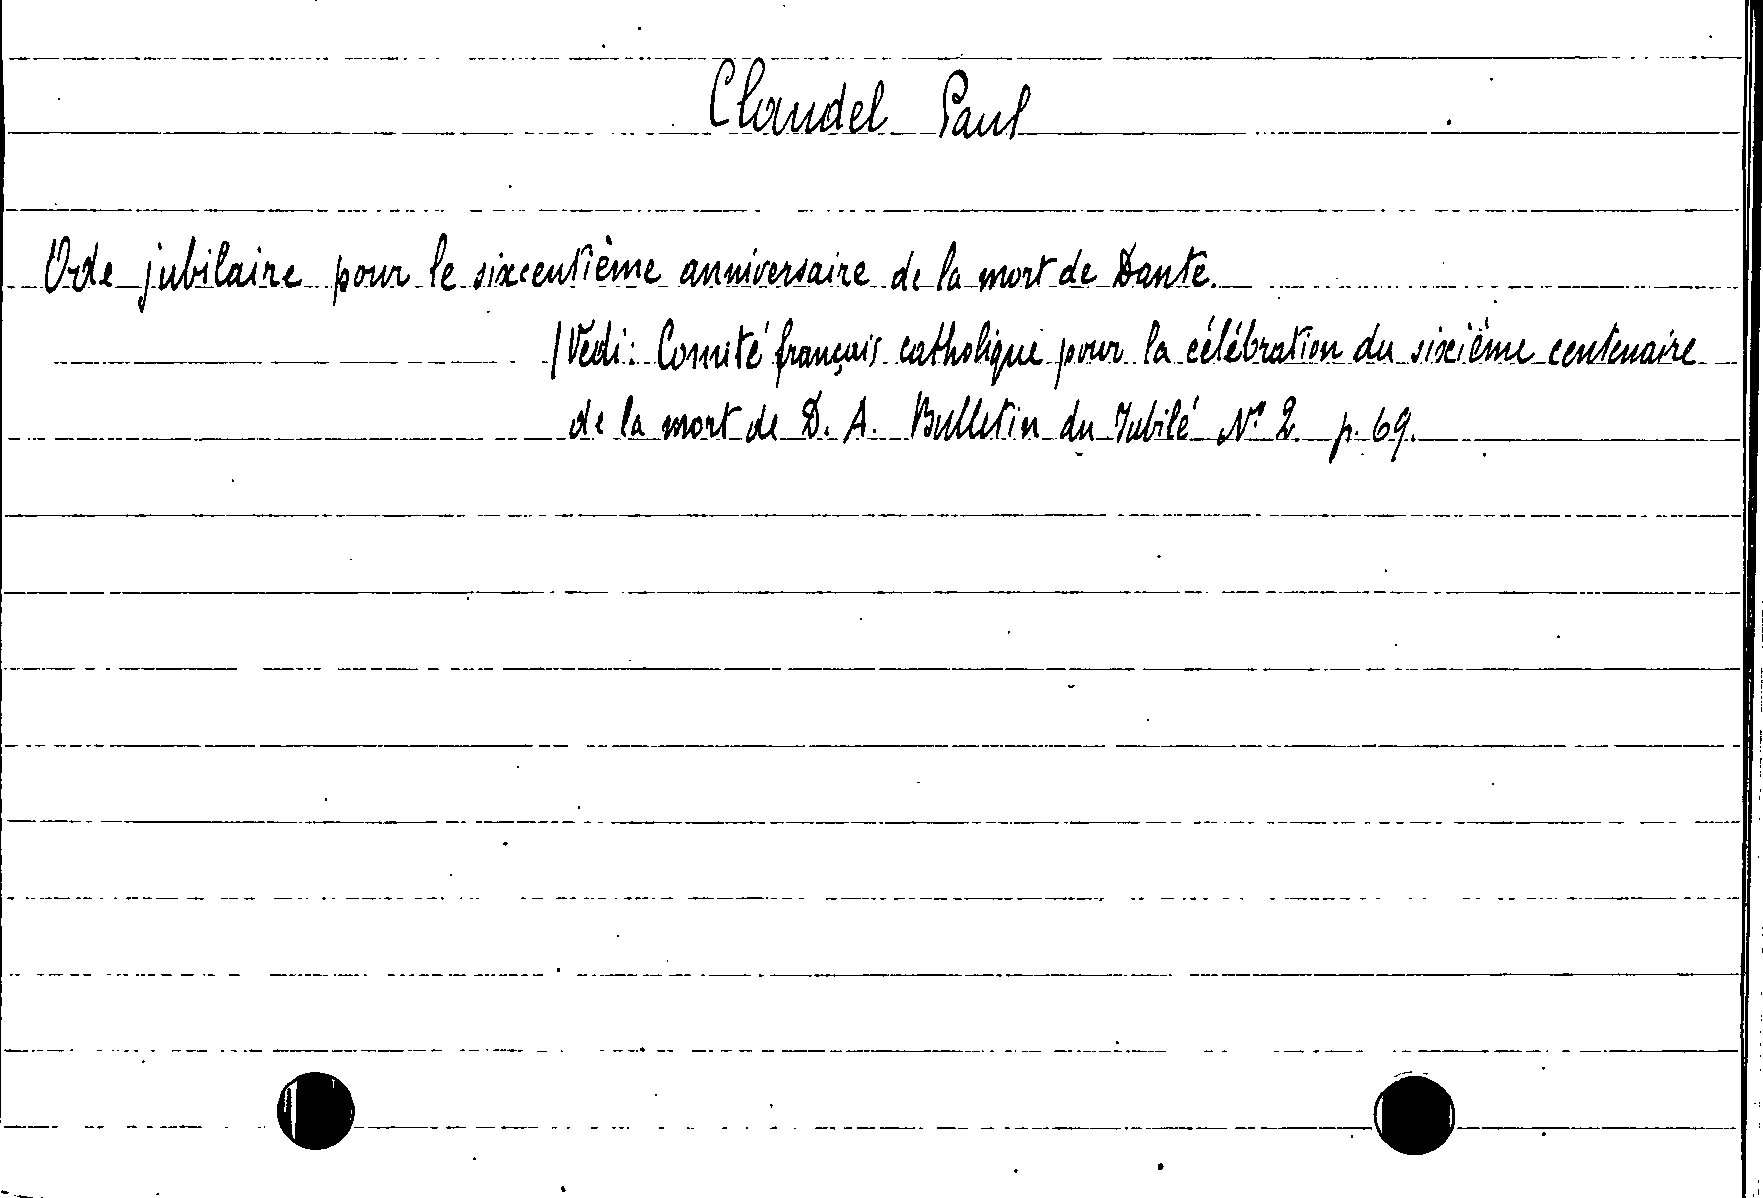 Claudel Paul
Ode jubilaire pour le sixcentième anniversaire de la mort de Dante.
/Vedi: Comité français catholique pour la célébration du sixième centenaire
de la mort de D. A. Bulletin du Jubilé N° 2 p. 69.